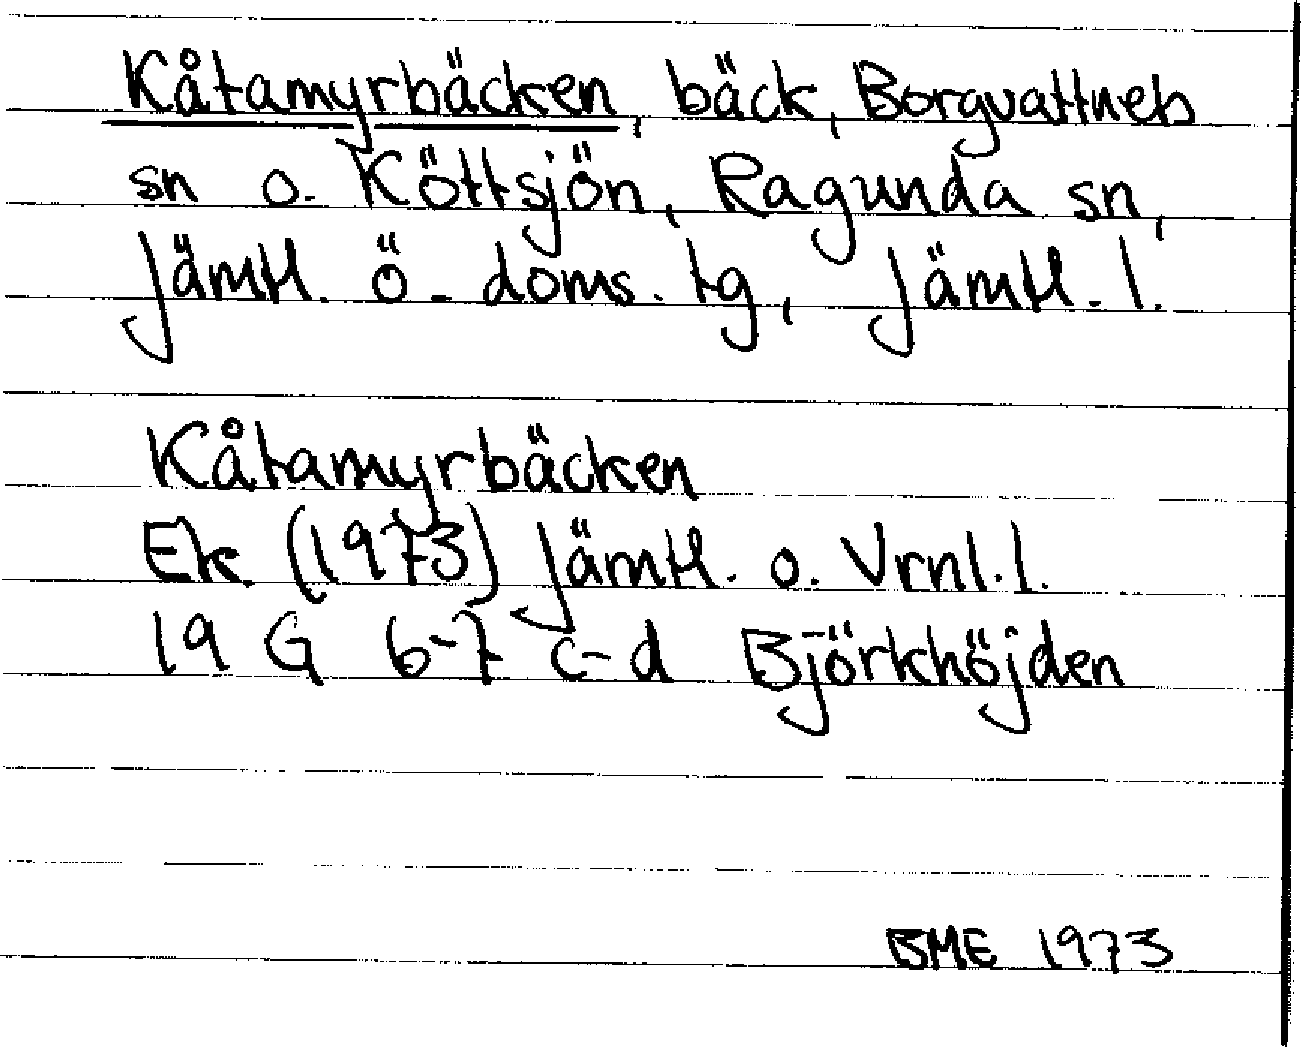 Kåtamyrbäcken, bäck, Borgvattnets
sn o. Köttsjön, Ragunda sn,
Jämtl. ö. doms. tg, Jämtl. l.
Kåtamyrbäcken
Ek (1973) Jämtl. o. Vrnl. l.
19 G 6-7 c-d Björkhöjden
BME 1973